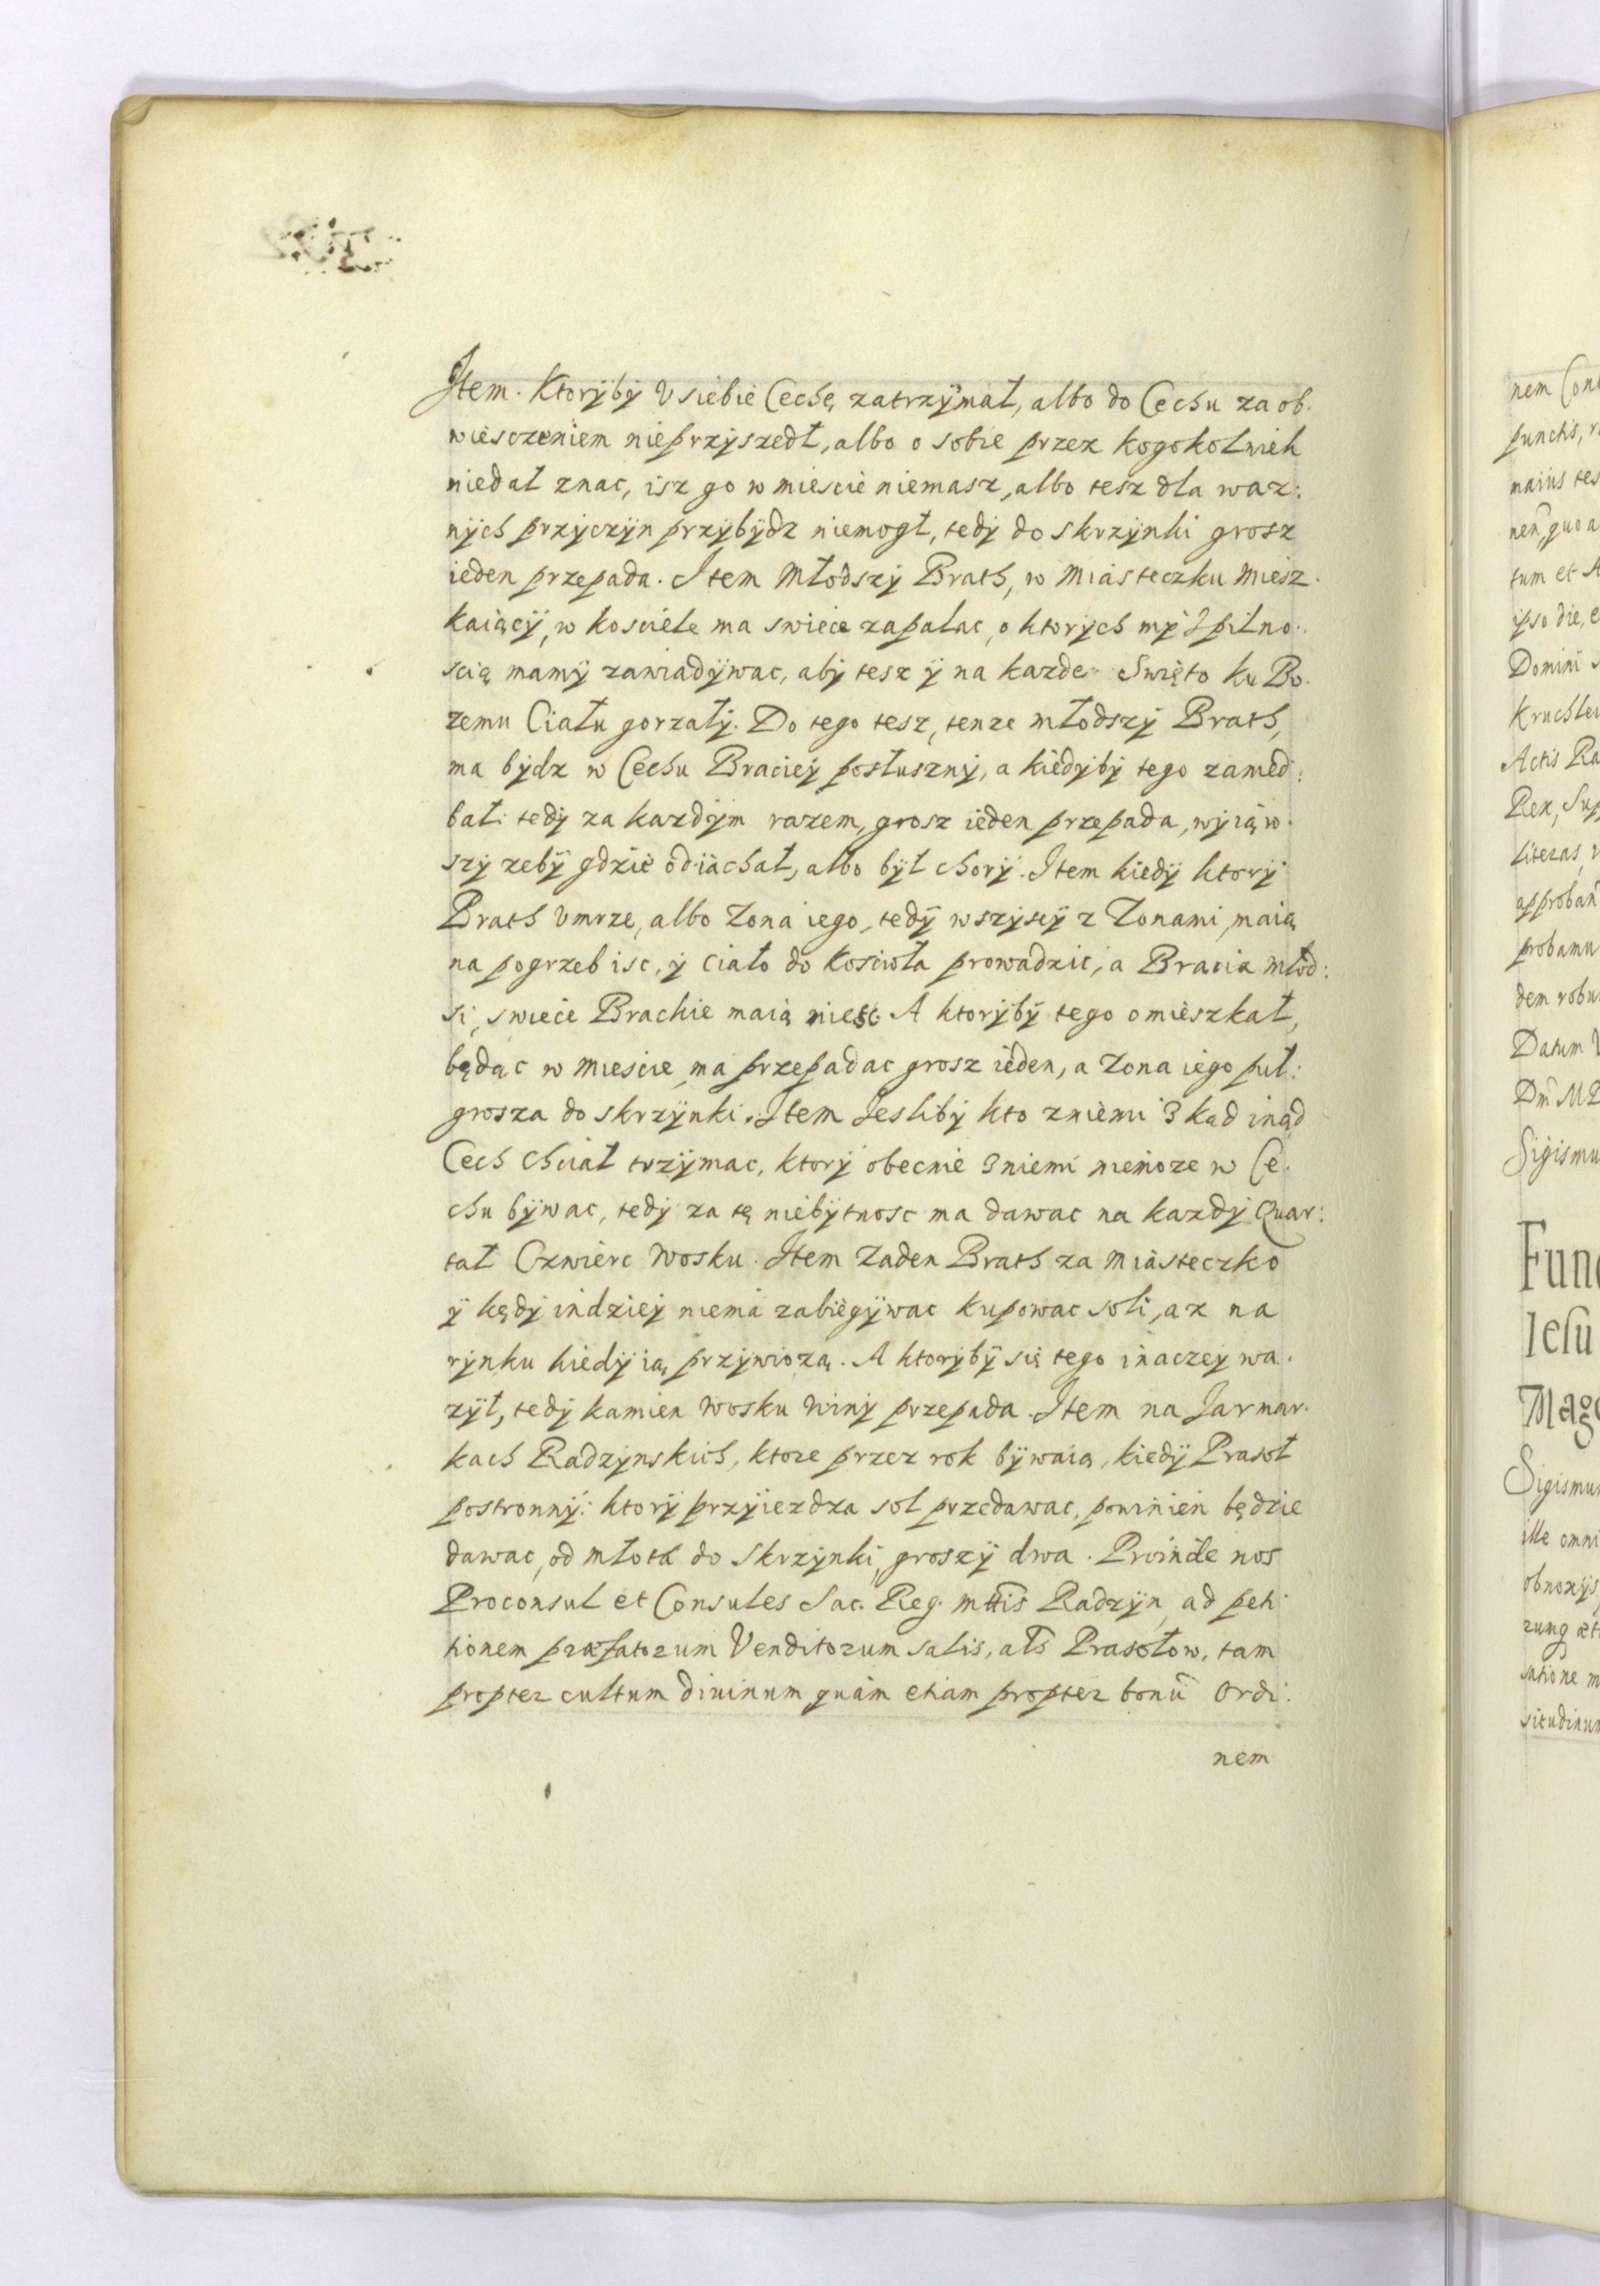 Item. Ktoryby V siebie Cechę zatrzymał, albo do Cechu za ob.
wiesczeniem nieprzyszedł, albo o sobie przez kogokolwiek
niedał znac, isz go w miescie niemasz, albo tesz dla waz:
nych przyczyn przybydz niemogł, tedy do skrzynki grosz
ieden przepada. Item Młodszy Brath, w Miasteczku Miesz.
kaiący, w kosciele ma swiece zapalac, o ktorych my z pilno.
scią mamy zawiadywac, aby tesz y na kazde Swięto ku Bo.
zemu Ciału gorzały. Do tego tesz, tenze młodszy Brath,
ma bydz w Cechu Braciey posłuszny, a kiedyby tego zamed:
bał: tedy za kazdym razem, grosz ieden przepada, wyiąw.
szy zeby gdzie odiachał, albo był chory. Item kiedy ktory
Brath Vmrze, albo Zona iego, tedy wszyscy z Zonami, maią
na pogrzeb isc, y Ciało do Kosciola prowadzic, a Bracia młod:
si, swiece Brackie maią niesc. A ktoryby tego omieszkał,
będąc w Miescie ma przepadac grosz ieden, a Zona iego puł:
grosza do skrzynki. Item Iesliby kto zniemi skąd inąd
Cech chciał trzymac, ktory obecnie zniemi niemoze w Ce.
chu bywac, tedy za tę niebytnosc ma dawac na kazdy Quar:
tał Czwierc Wosku. Item Zaden Brath za Miasteczko
y kędy indziey niema zabiegywac kupowac soli, az na
rynku kiedy ią przywiozą. A ktoryby się tego inaczey wa.
zył, tedy kamien Wosku Winy przepada. Item na Iarmar.
kach Radzynskich, ktore przez rok bywaią, kiedy Prasoł
postronny: ktory przyiezdza sol przedawac, powinien będzie
dawac, od młota do Skrzynki, groszy dwa. Proinde nos
Proconsul et Consules Sac. Reg. Mttis Radzyn, ad peti
tionem præfatorum Venditorum salis, als Prasołow, tam
propter cultum diuinum quàm etiam propter bonũ Ordi:
nem
nem
punctis,
maius
tum et
ipso die,
Domini
Actis
Rex,
literas,
probamu
Datum
Sigismu
Iesu
Sigismun
ille omni